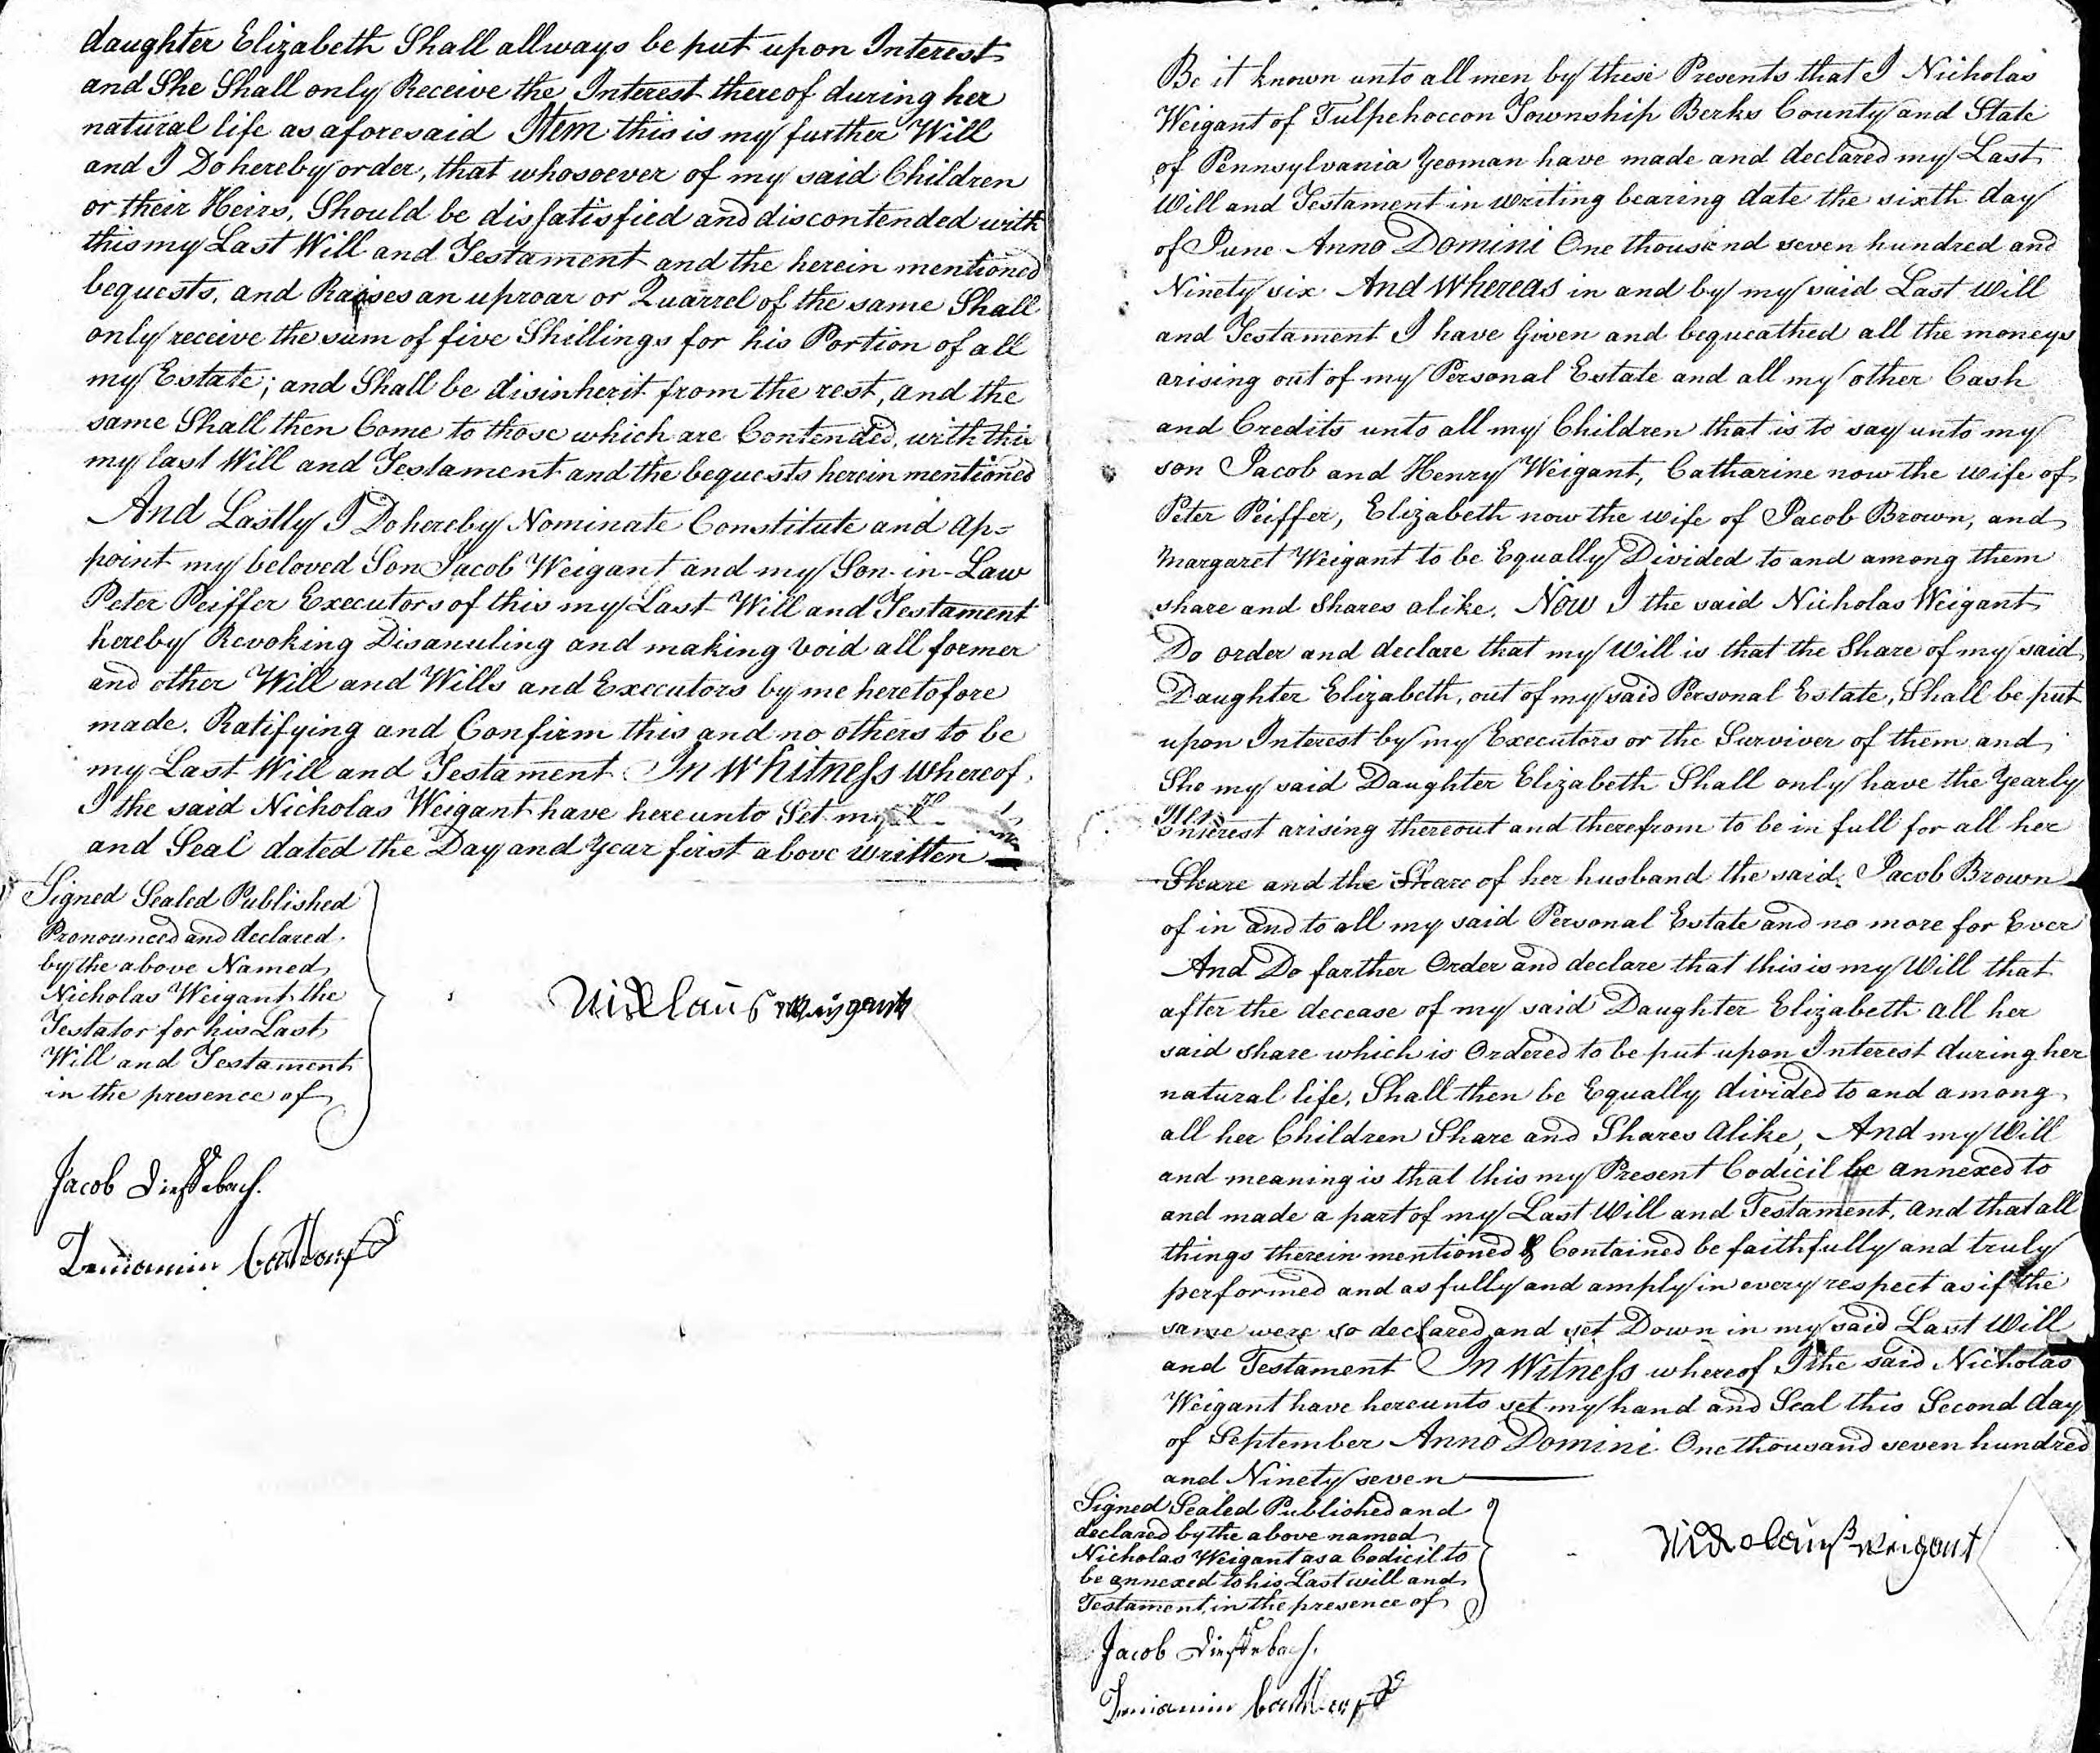 daughter Elizabeth Shall allways be put upon Interest
and She Shall only Receive the Interest thereof during her
natural life as aforesaid Item this is my further Will
and I Do hereby order, that whosoever of my said Children
or their Heirs, Should be dissatisfied and discontended with
this my Last Will and Testament and the herein mentioned
bequests, and Raises an uproar or Quarrel of the same Shall
only receive the sum of five Shillings for his Portion of all
my Estate; and Shall be disinherit from the rest, and the
same Shall then Come to those which are Contended, with this
my last Will and Testament and the bequests herein mentioned
And Lastly I Do hereby Nominate Constitute and Ap=
point my beloved Son Jacob Weigant and my Son-in-Law
Peter Peiffer Executors of this my Last Will and Testament
hereby Revoking Disanuling and making void all former
and other Will and Wills and Executors by me heretofore
made. Ratifying and Confirm this and no others to be
my Last Will and Testament In Whitness whereof
I the said Nicholas Weigant have hereunto Set my
and Seal dated the Day and Year first above written
Signed Sealed Published
Pronounced and declared
by the above Named
Nicholas Weigant the
Testator for his Last
Will and Testament
in the presence of
Nicklaus Weigant
Jacob Dieffebach.
Beniamin
Be it known unto all men by these Presents that I Nicholas
Weigant of Tulpehoccon Township Berks County and State
of Pennsylvania Yeoman have made and declared my Last
Will and Testament in writing bearing date the sixth day
of June Anno Domini One thousand seven hundred and
Ninety six. And Whereas in and by my said Last Will
and Testament I have Given and bequeathed all the moneys
arising out of my Personal Estate and all my other Cash
and Credits unto all my Children that is to say unto my
son Jacob and Henry Weigant, Catharine now the wife of
Peter Peiffer, Elizabeth now the wife of Jacob Brown, and
Margaret Weigant to be Equally Divided to and among them
share and Shares alike. Now I the said Nicholas Weigant
Do order and declare that my Will is that the Share of my said
Daughter Elizabeth, out of my said Personal Estate, Shall be put
upon Interest by my Executors or the Surviver of them and
She my said Daughter Elizabeth Shall only have the Yearly
Interest arising thereout and therefrom to be in full for all her
Share and the Share of her husband the said Jacob Brown
of in and to all my said Personal Estate and no more for Ever
And Do farther Order and declare that this is my Will that
after the decease of my said Daughter Elizabeth all her
said share which is Ordered to be put upon Interest during her
natural life, Shall then be Equally divided to and among
all her Children Share and Shares Alike, And my Will
and meaning is that this my Present Codicil be annexed to
and made a part of my Last Will and Testament, and that all
things therein mentioned & Contained be faithfully and truly
performed and as fully and amply in every respect as if the
same were so declared and set Down in my said Last Will
and Testament In Witness whereof I the said Nicholas
Weigant have hereunto set my hand and Seal this Second day
of September Anno Domini One thousand seven hundred
and Ninety seven
Signed Sealed Published and
declared by the above named
Nicholas Weigant as a Codicil to
be annexed to his Last will and
Testament, in the presence of
Nickolauß Weigant
Jacob Dieffebach.
Beniamin